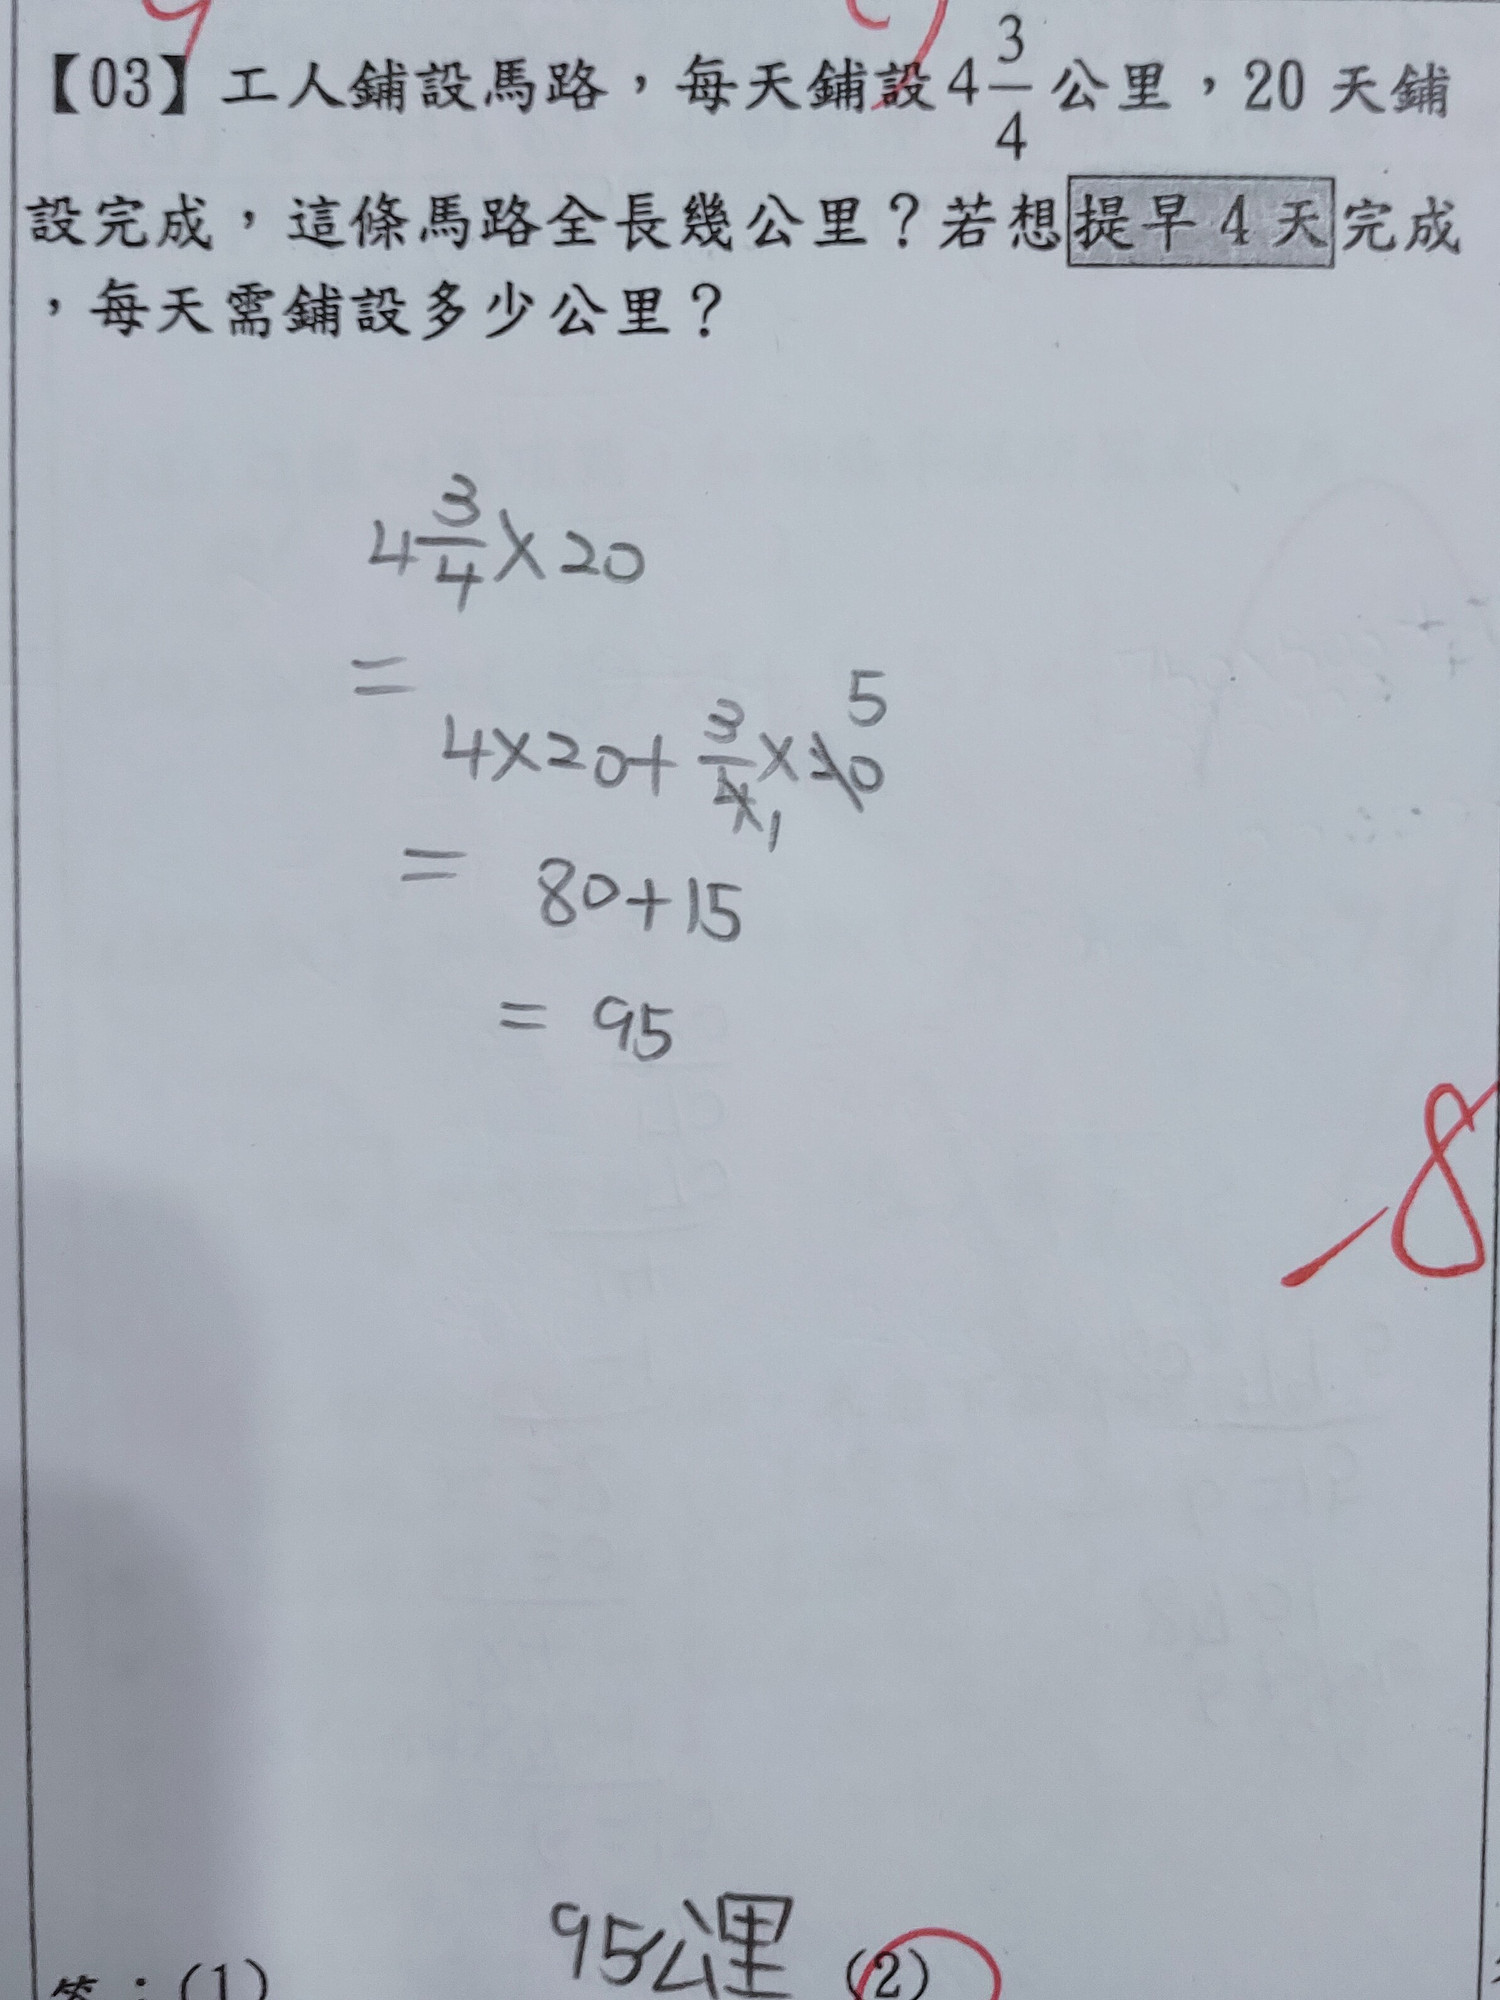 【03】工人鋪設馬路，每天鋪設4 3/4 公里，20 天鋪
設完成，這條馬路全長幾公里？若想提早 4 天完成
，每天需鋪設多少公里？
4 3/4 × 20
=
4×20+ 3/4 ×20 5
1
= 80+15
= 95
-8
95公里
答：(1) (2)